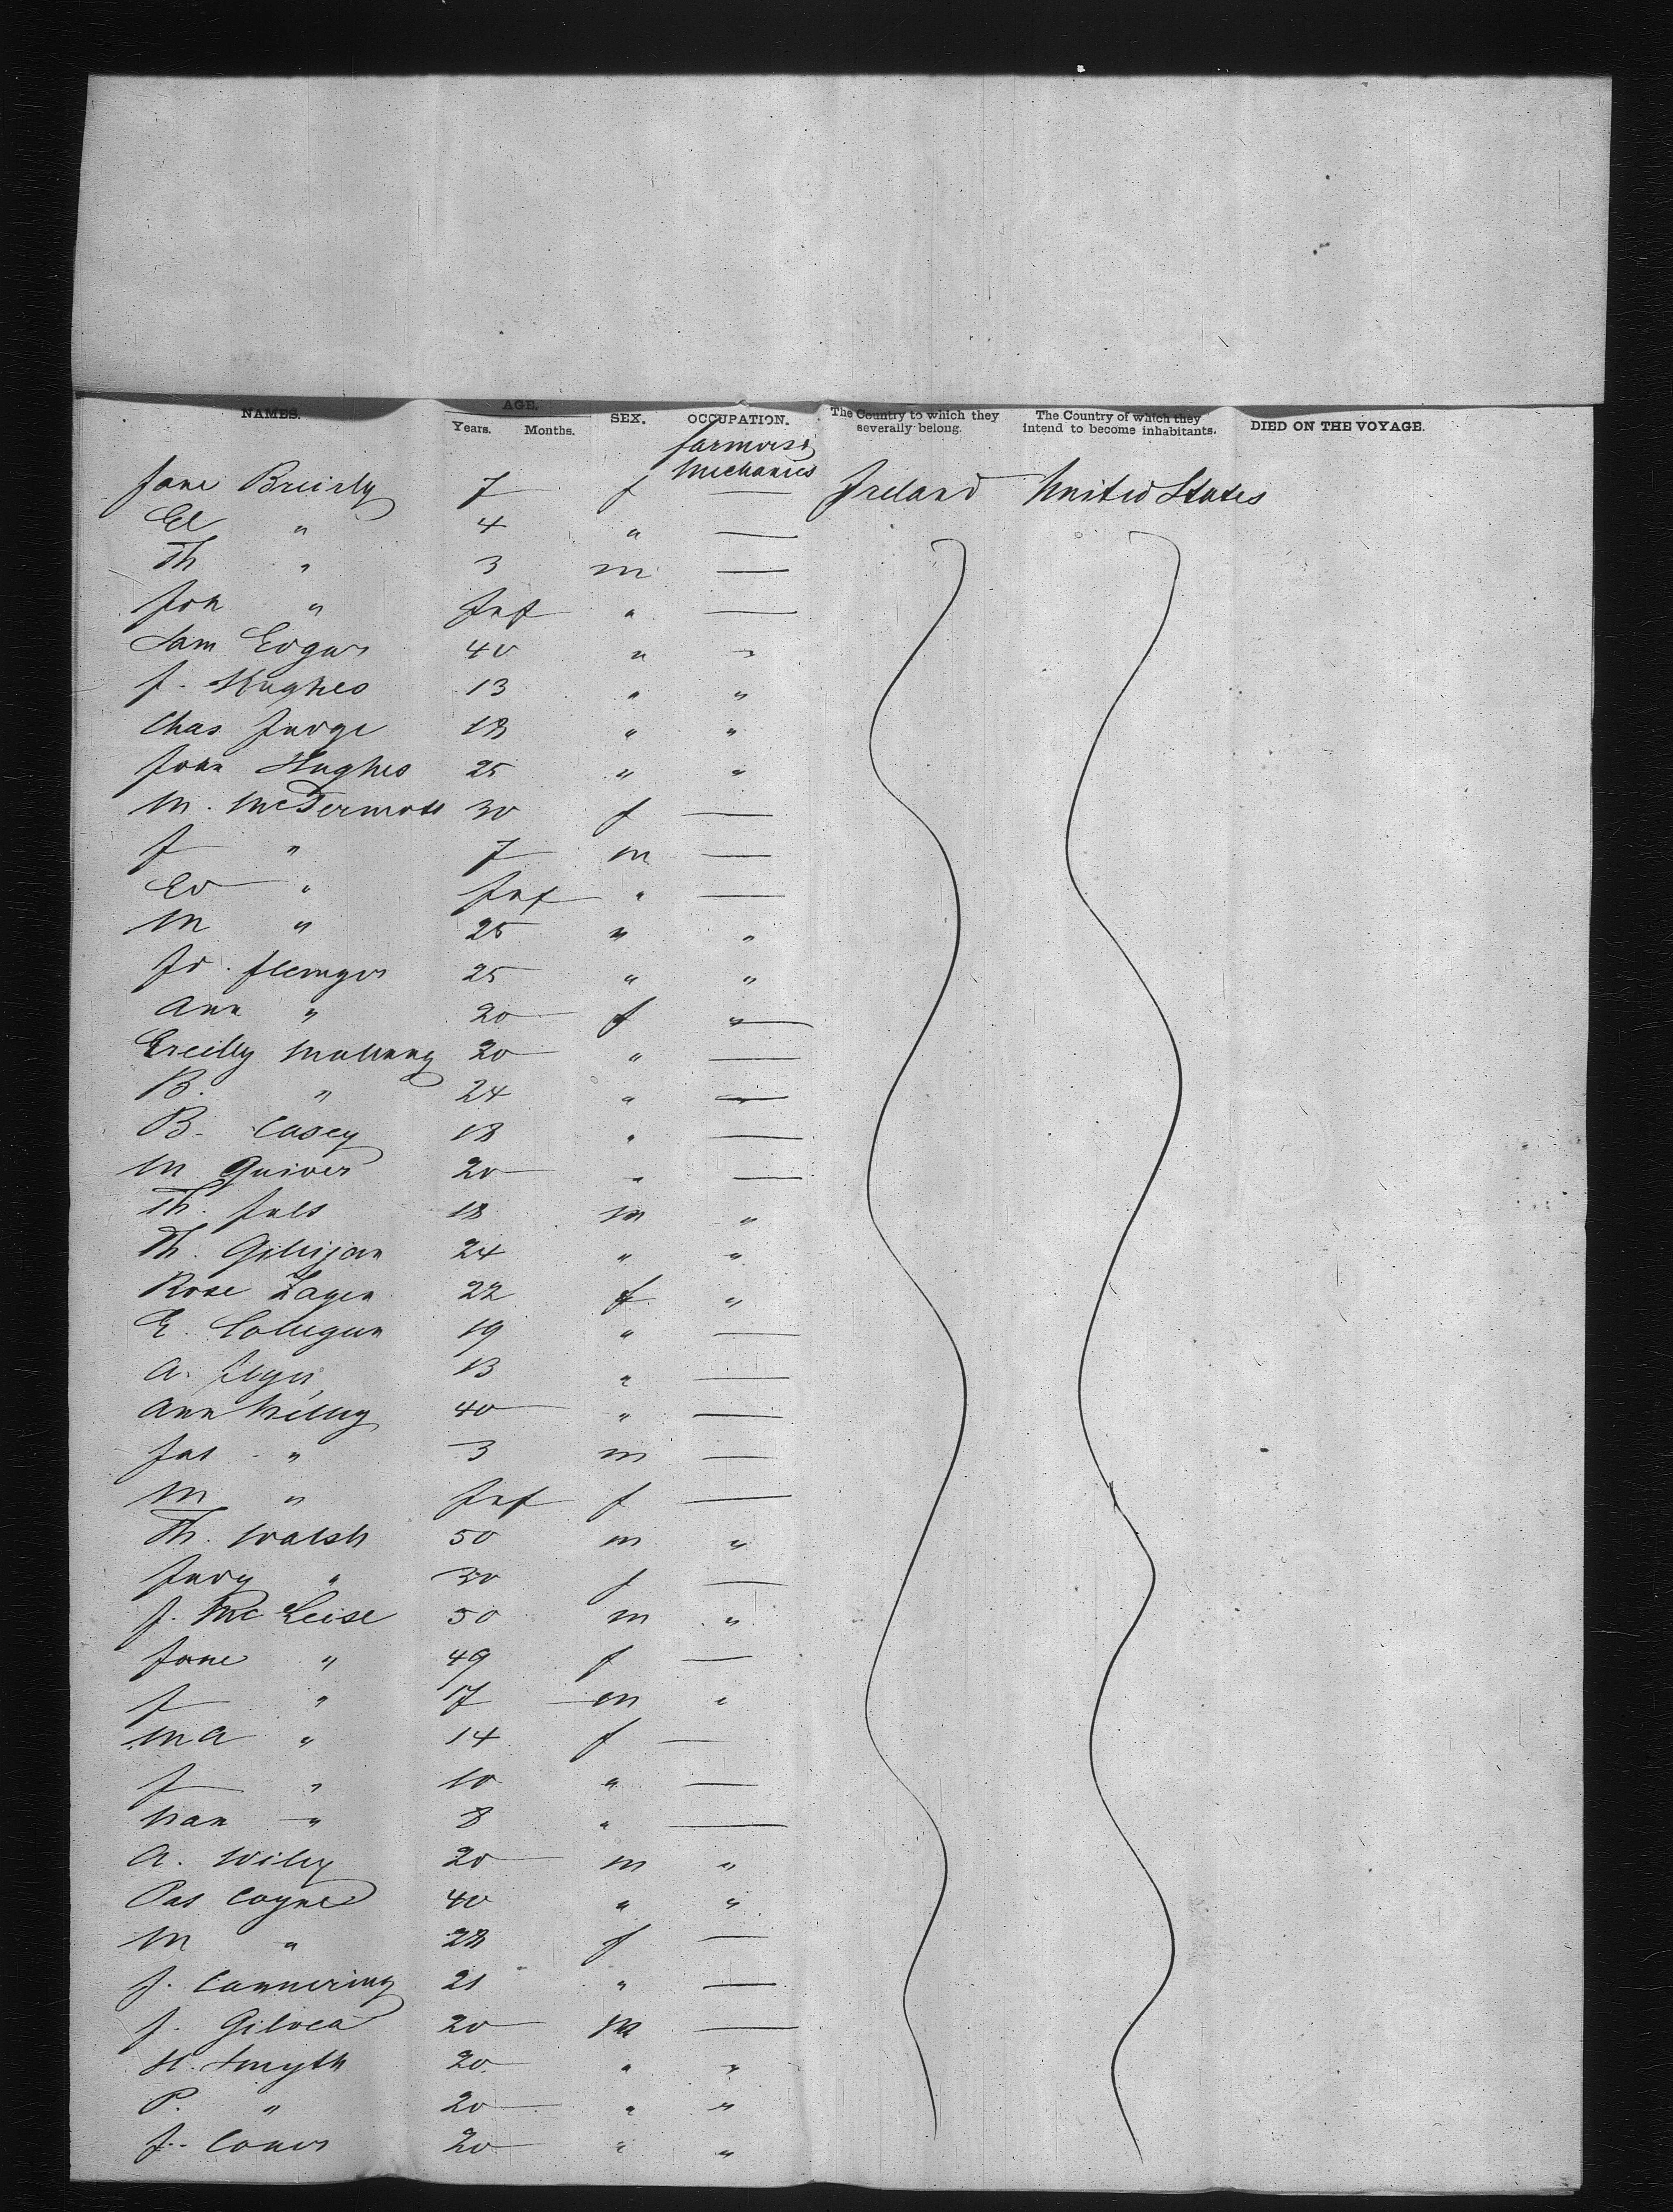 NAMES. AGE. Years. Months. SEX. OCCUPATION. The Country to which they severally belong. The Country of which they intend to become inhabitants. DIED ON THE VOYAGE.
farmers &
Mechanics
Jane Breirly 7 f — Ireland United States
El " 4 " —
Th " 3 m —
Joh " Inf " —
Sam Edgar 40 " "
J. Hughes 13 " "
Chas Judge 18 " "
John Hughes 25 " "
M. McDermott 30 f —
J " 7 m —
Ed " Inf " —
M " 25 " "
25 " "
Ann " 20 f —
20 " —
B. " 24 " —
B. Casey 18 " —
M 20 " —
Th. 18 m "
Th. Gilligan 24 " "
Rose 22 f "
E. 19 " —
A. 13 " —
Ann 40 " —
Jas " 3 m —
M " Inf f —
Th. Walsh 50 m "
Judy " 30 f —
J. McLeise 50 m "
Jane " 49 f —
J " 17 m "
M A " 14 f —
J " 10 " —
Nan " 8 " —
A. Wiley 20 m "
Pat Coyne 40 " "
M " 28 f —
J. 21 " —
J. 20 m —
H. Smyth 20 " "
P. " 20 " "
J. 20 " "